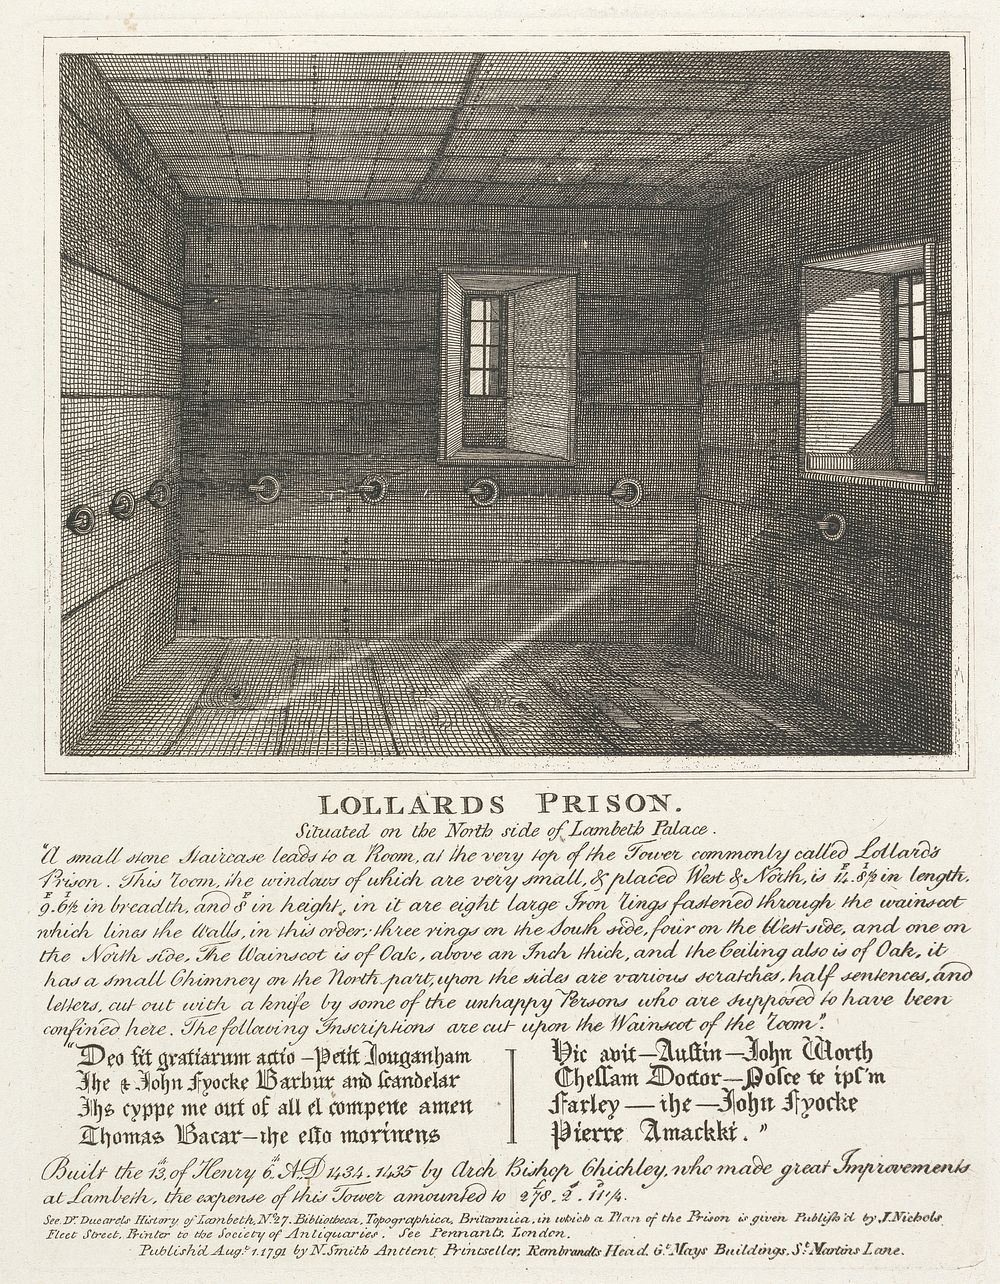 LOLLARDS PRISON.
Situated on the North side of Lambeth Palace.
"A small stone Staircase leads to a Room, at the very top of the Tower commonly called Lollard's
Prison. This room, the windows of which are very small, & placed West & North, is 14 F. 8½ I. in length,
9 F. 6½ in breadth, and 8 F. in height, in it are eight large Iron rings fastened through the wainscot
which lines the Walls, in this order; three rings on the South side, four on the West side, and one on
the North side. The Wainscot is of Oak, above an Inch thick, and the Ceiling also is of Oak, it
has a small Chimney on the North part, upon the sides are various scratches, half sentences, and
letters, cut out with a knife by some of the unhappy Persons who are supposed to have been
confined here. The following Inscriptions are cut upon the Wainscot of the room".
"Deo sit gratiarum actio – Petit Jouganham
Jhe & John Fyocke Barbur and scandelar
Jhs cyppe me out of all el compene amen
Thomas Bacar – ihe esto morinens
Hic avit – Austin – John Worth
Chessam Doctor – Nosce te ips'm
Farley – ihe – John Fyocke
Pierre Amackki."
Built the 13th of Henry 6th A.D 1434. 1435 by Arch Bishop Chichley, who made great Improvements
at Lambeth, the expense of this Tower amounted to £278. 2s. 11¼d.
See Dr. Ducarels History of Lambeth, No. 27. Bibliotheca, Topographica, Britannica, in which a Plan of the Prison is given Publish'd by J. Nichols
Fleet Street, Printer to the Society of Antiquaries. See Pennants, London.
Publish'd Augt. 1. 1791 by N. Smith Antient Printseller, Rembrandts Head, Gt. Mays Buildings, St. Martins Lane.